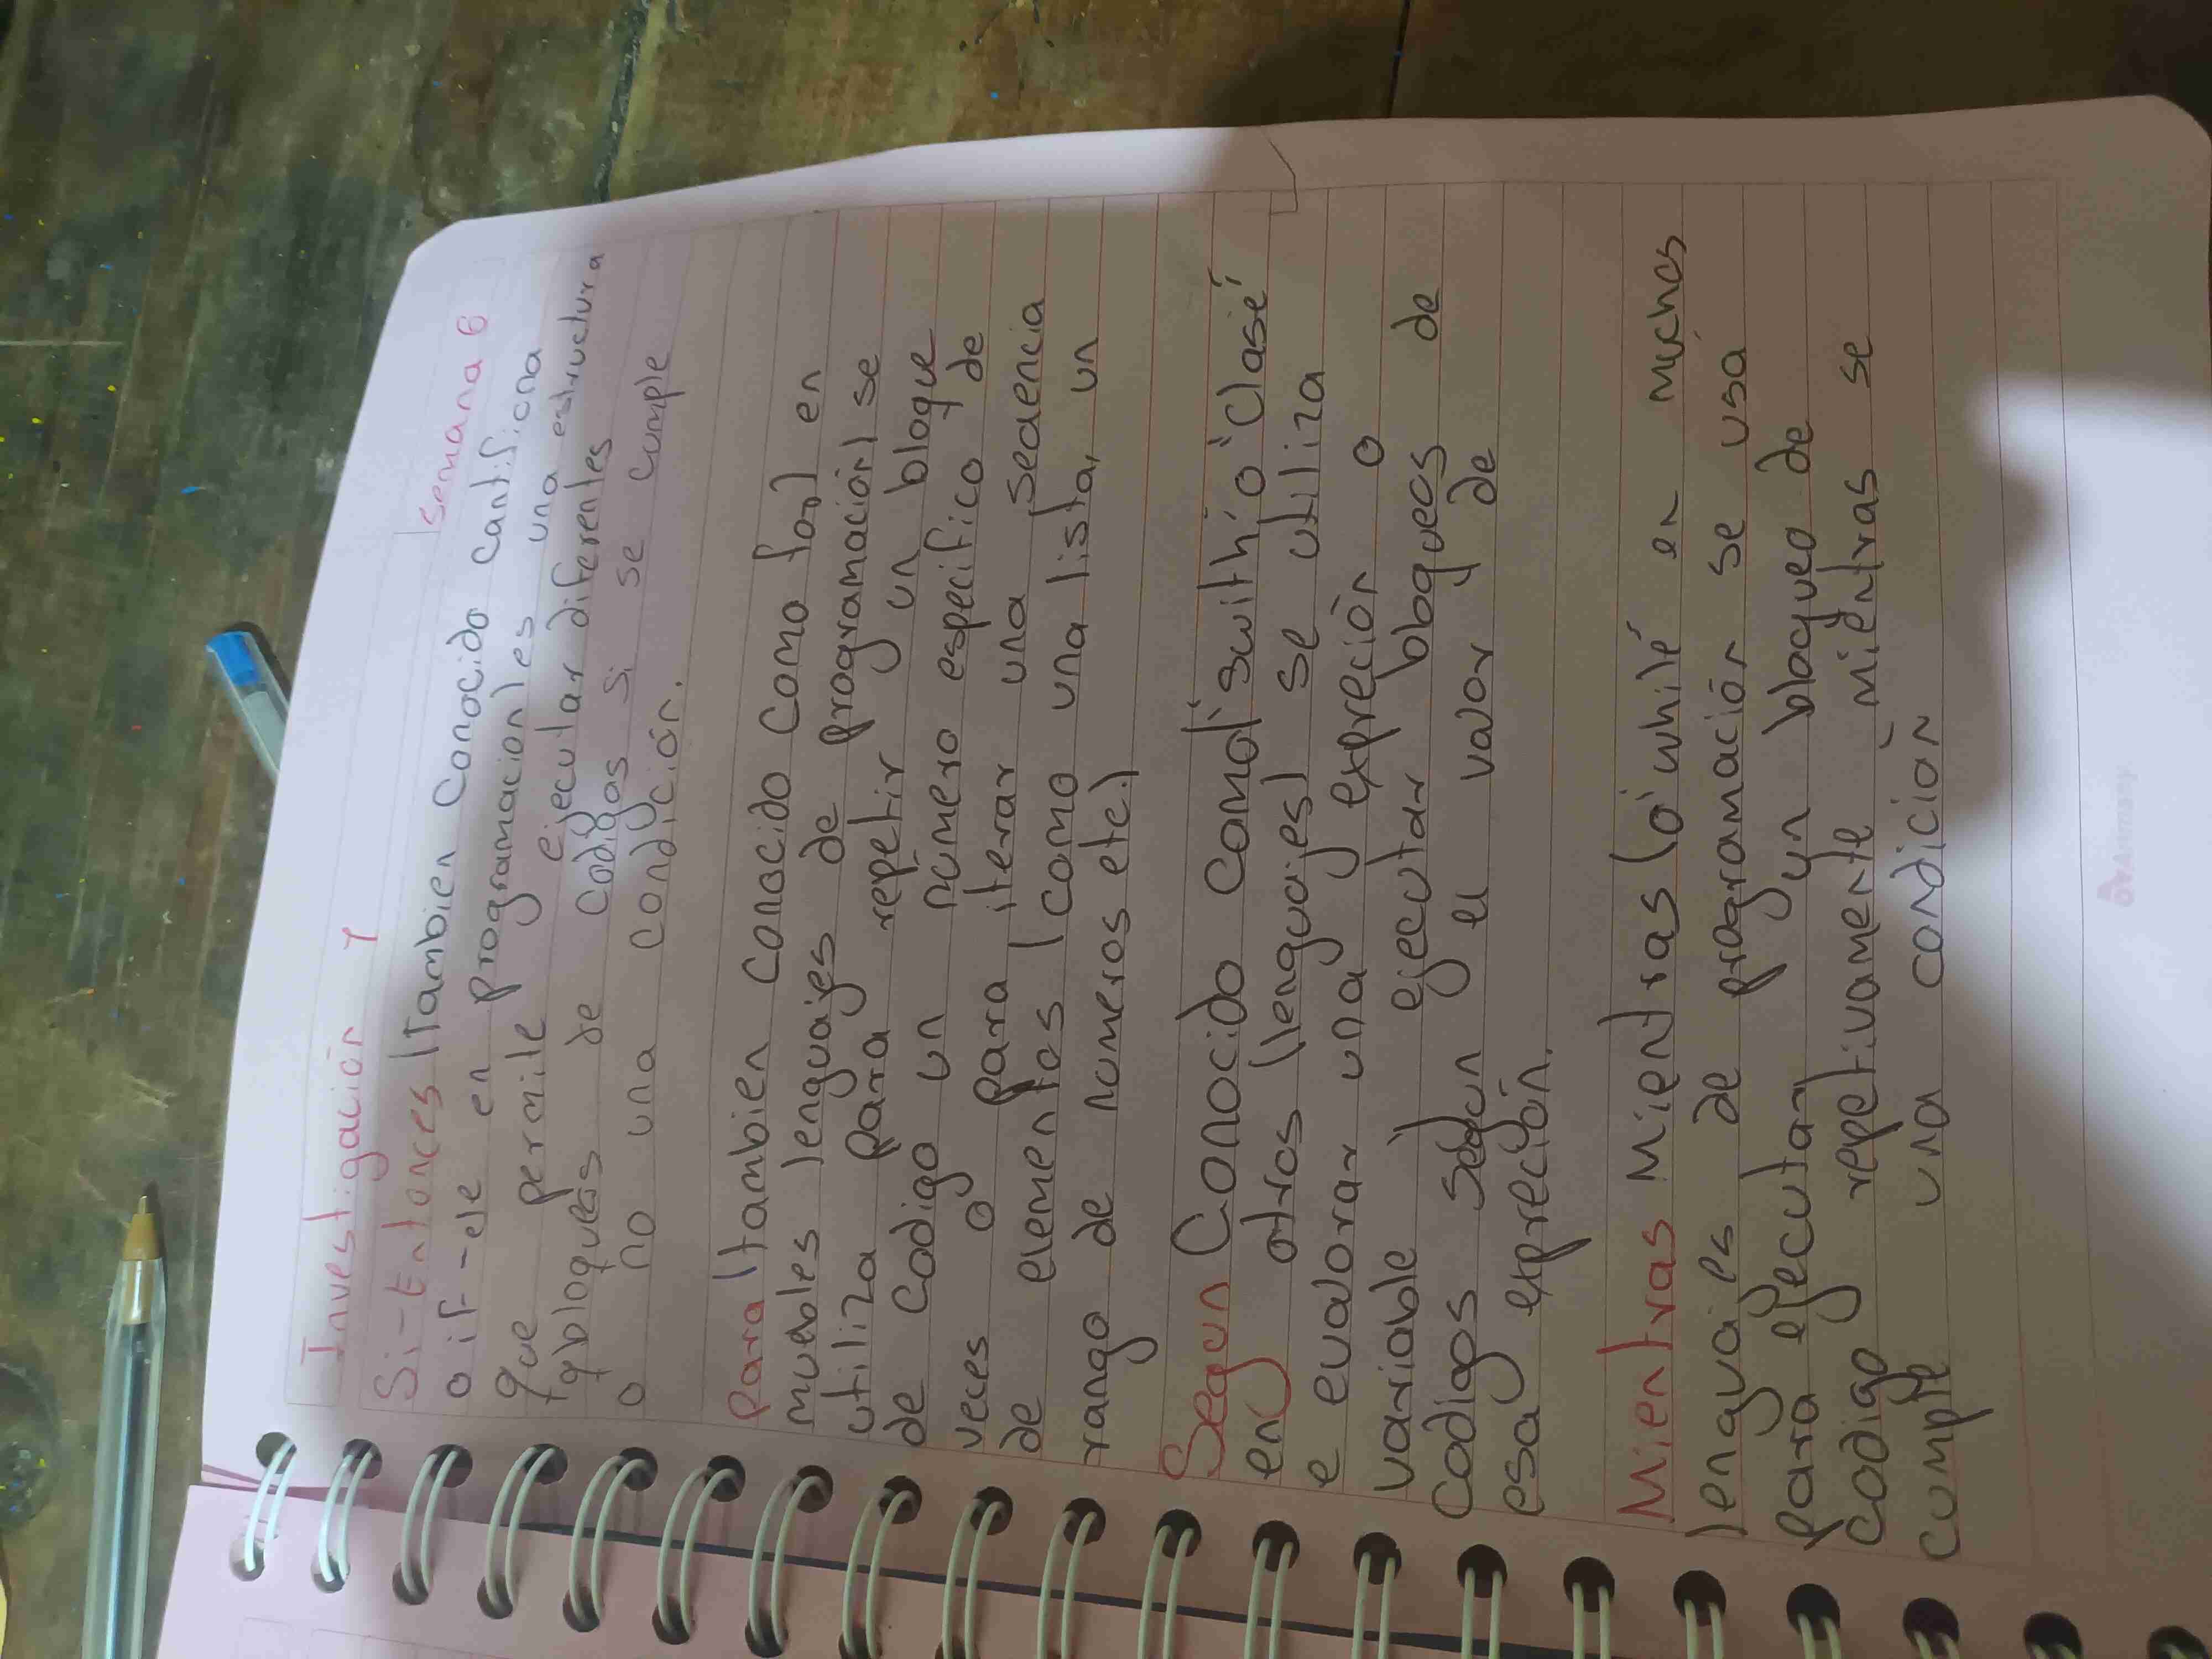 Investigación 1
semana 6
Si-Entonces (Tambien Conocido Cantificna
o if-ele en programacion) es una estructura
que permite ejecutar diferentes
bloques de codigos si se cumple
o no una condición.
Para (tambien conocido como for) en
muebles lenguajes de programación) se
utiliza para repetir un bloque
de Codigo un número especifico de
veces o para iterar una secuencia
de elementos (como una lista, un
rango de numeros etc.)
Segun Conocido como ('swith' o 'Clase'
en otros (lenguajes) se utiliza
e evalorar una expreción o
variable y ejecutar bloquecs de
Codigos según el valor de
esa expreción.
Mientras Mientras (o' while' en muchos
lenguajes de programación se usa
para ejecutar) un bloqueo de
Codigo repetivamente mientras se
cumple una condición
Norma